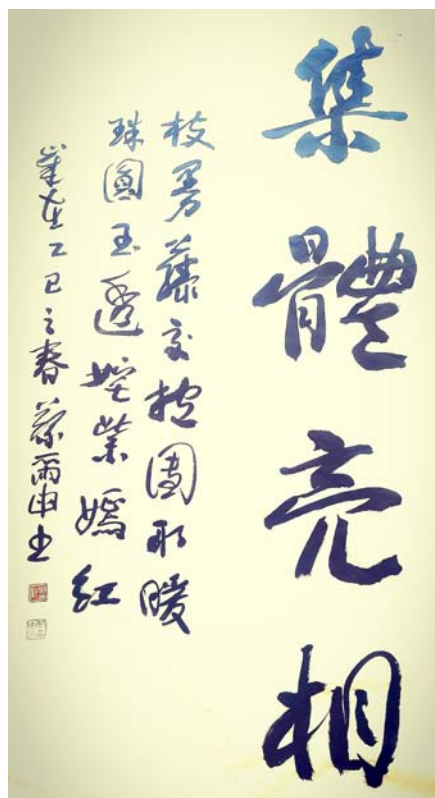 集體亮相
枝蔓藤交抱團取暖
珠圓玉透姹紫嫣紅
歲在乙巳之春蔡爾申书